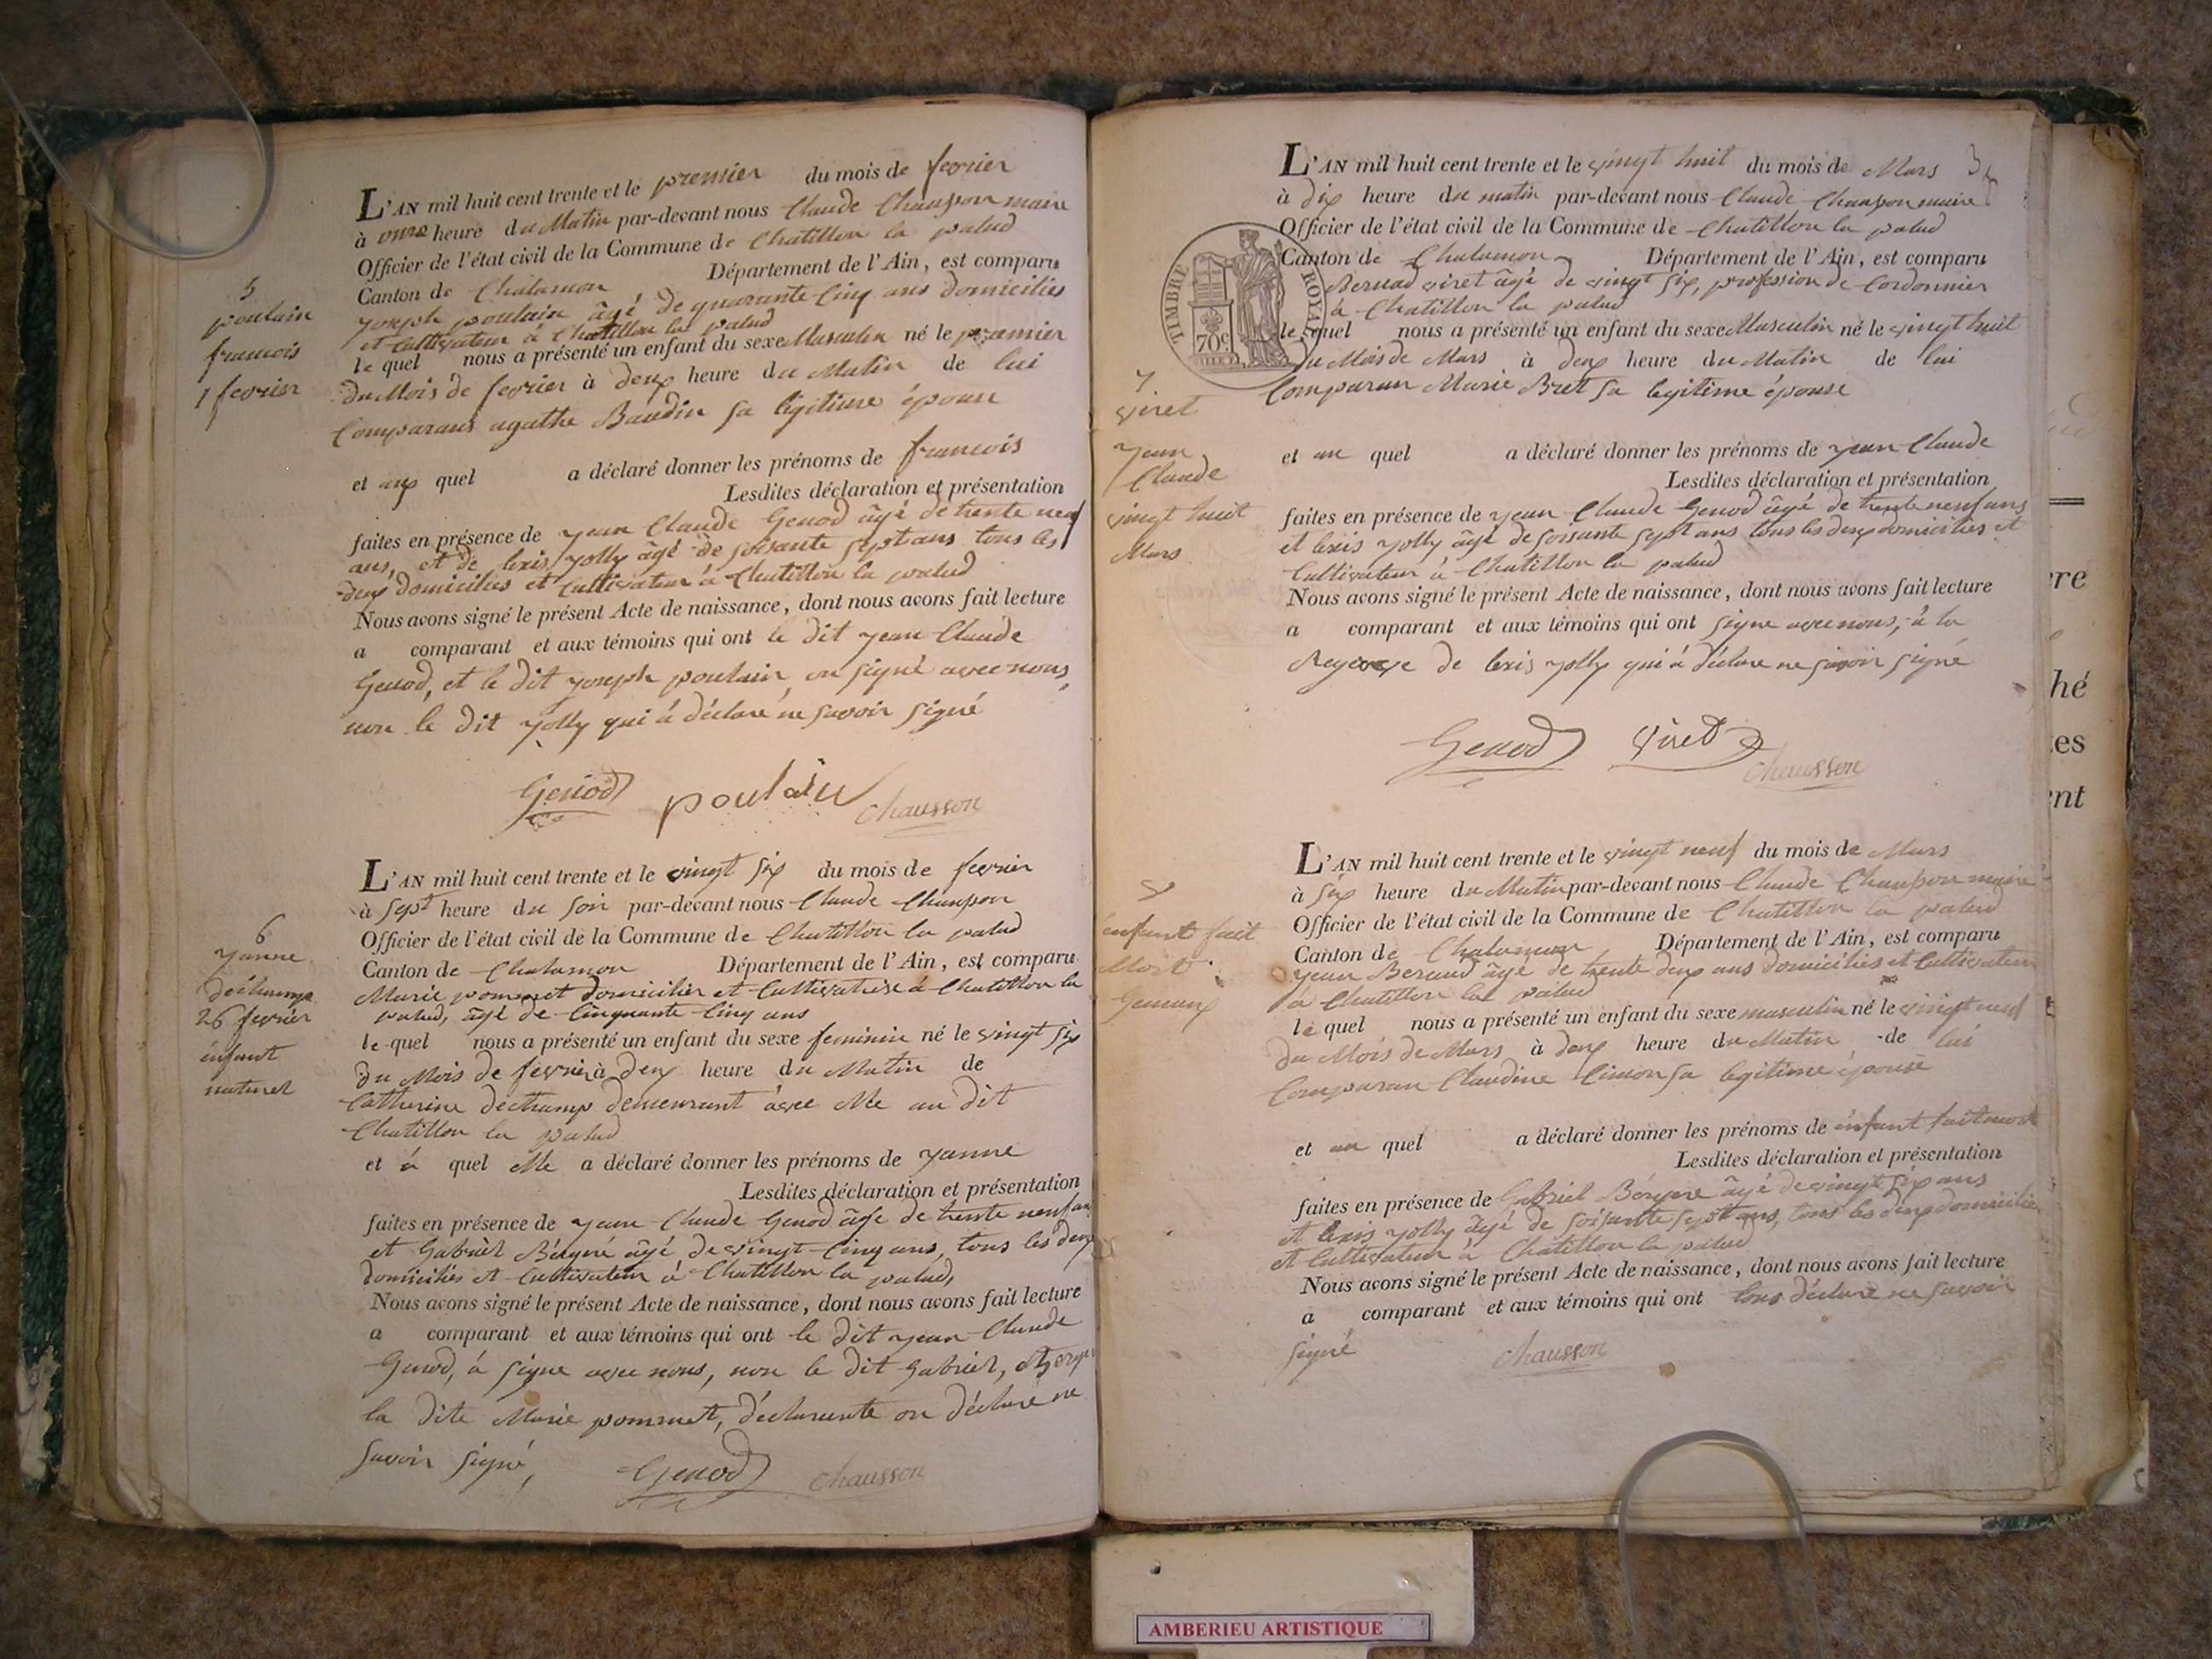 5
poulain
francois
1 fevrier
L'AN mil huit cent trente et le premier du mois de fevrier
à onze heure du Matin par-devant nous Claude Chausson maire
Officier de l'état civil de la Commune de Chatillon la palud
Canton de Chalamon Département de l'Ain, est comparu
yoseph poulain âgé de quarante Cinq ans domiciliés
et Cultivateur à Chatillon la palud
le quel nous a présenté un enfant du sexe Masculin né le premier
du Mois de fevrier à deux heure du Matin de lui
Comparans agathe Baudin sa légitime épouse
et aux quel a déclaré donner les prénoms de francois
Lesdites déclaration et présentation
faites en présence de yean Claude Genod âgé de trente neuf
ans, et de lexis yolly âgé de soisante sept ans tous les
deux domiciliés et Cultivateur à Chatillon la palud
Nous avons signé le présent Acte de naissance, dont nous avons fait lecture
a comparant et aux témoins qui ont le dit yean Claude
Genod, et le dit yoseph poulain, on signé avec nous,
non le dit yolly qui à déclaré ne savoir signé
Genod poulain Chausson
6
yanne
déchamp
26 fevrier
énfant
naturel
L'AN mil huit cent trente et le vingt six du mois de fevrier
à sept heure du soir par-devant nous Claude Chausson
Officier de l'état civil de la Commune de Chatillon la palud
Canton de Chalamon Département de l'Ain, est comparu
Marie pommet domicilier et Cultivatrise à Chatillon la
palud, âgé de Cinquante Cinq ans
le quel nous a présenté un enfant du sexe feminin né le vingt six
du Mois de fevrier à deux heure du Matin de
Catherine dechamp demeurant avec Elle au dit
Chatillon la palud
et à quel Elle a déclaré donner les prénoms de yanne
Lesdites déclaration et présentation
faites en présence de yean Claude Genod âgé de trente neuf ans
et Gabriel Bérgné âgé de vingt Cinq ans, tous les deux
domiciliés et Cultivateur à Chatillon la palud,
Nous avons signé le présent Acte de naissance, dont nous avons fait lecture
a comparant et aux témoins qui ont le dit yean Claude
Genod, à signe avec nous, non le dit Gabriel,
la dite Marie pommet, déclarante on déclaré ne
savoir signé,
Genod Chausson
3
L'AN mil huit cent trente et le vingt huit du mois de Mars
à dix heure du matin par-devant nous Claude Chausson maire
Officier de l'état civil de la Commune de Chatillon la palud
Canton de Chalamon Département de l'Ain, est comparu
Bernad viret âgé de vingt six, profession de Cordonnier
à Chatillon la palud
le quel nous a présenté un enfant du sexe Masculin né le vingt huit
du Mois de Mars à deux heure du Matin de lui
Comparan Marie Bret sa legitime épouse
TIMBRE ROYAL
70c
7
viret
yean
Claude
vingt huit
Mars
et au quel a déclaré donner les prénoms de yean Claude
Lesdites déclaration et présentation
faites en présence de yean Claude Genod âgé de trente neuf ans
et lexis yolly âgé de soisante sept ans tous les deux domiciliés et
Cultivateur à Chatillon la palud
Nous avons signé le présent Acte de naissance, dont nous avons fait lecture
a comparant et aux témoins qui ont signe avec nous, à la
de lexis yolly qui à déclare ne savoir signé
Genod viret
Chausson
énfant fait
Mort
L'AN mil huit cent trente et le vingt neuf du mois de Mars
à six heure du Matin par-devant nous Claude Chausson maire
Officier de l'état civil de la Commune de Chatillon la palud
Canton de Chalamon Département de l'Ain, est comparu
yean Beraud âgé de trente deux ans domiciliés et Cultivateur
à Chatillon la palud
le quel nous a présenté un enfant du sexe masculin né le vingt neuf
du Mois de Mars à deux heure du Matin de lui
Comparan Claudine Simon sa legitime épouse
et au quel a déclaré donner les prénoms de énfant fait mort
Lesdites déclaration et présentation
faites en présence de Gabriel Bérgne âgé de vingt six ans
et lexis yolly âgé de soisante sept ans, tous les deux domicilies
et Cultivateur à Chatillon la palud
Nous avons signé le présent Acte de naissance, dont nous avons fait lecture
a comparant et aux témoins qui ont tous déclare ne savoir
signé
Chausson
re
hé
es
nt
AMBERIEU ARTISTIQUE